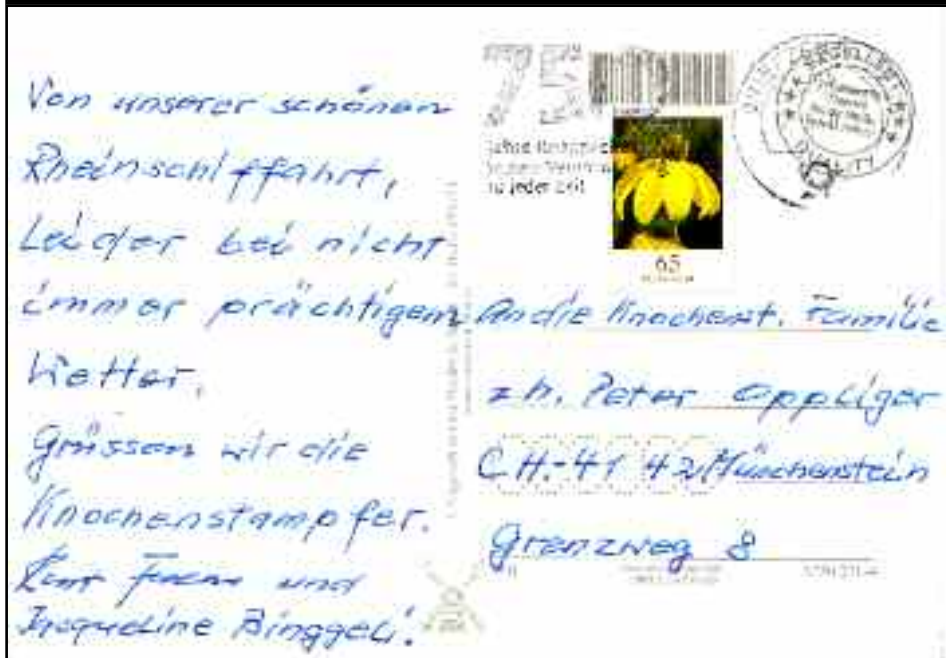 Von unserer schönen
Rheinschiffahrt,
Leider bei nicht
immer prächtigem
Wetter,
Grüssen wir die
Knochenstampfer.
und
Jacqueline Binggeli.
75
Jahre
zu jeder Zeit
65
An die Knochenst. Familie
z.h. Peter Oppliger
CH.-4142 Münchenstein
Grenzweg 8